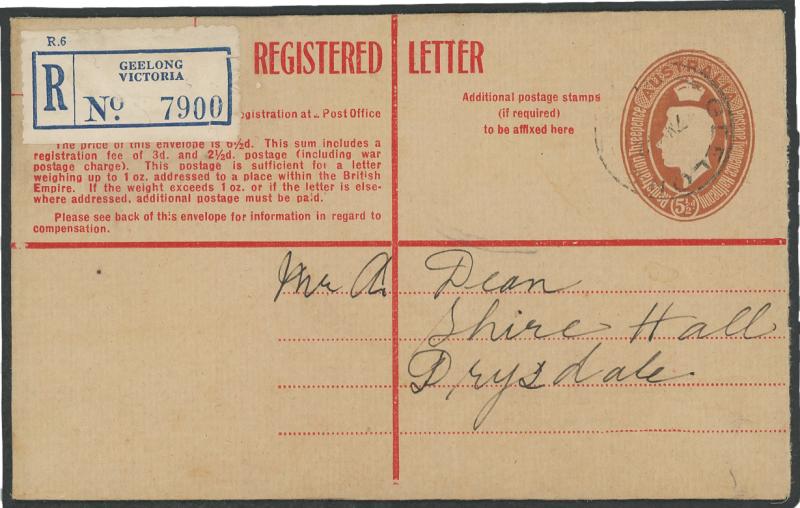 R.6
R
GEELONG
VICTORIA
No 7900
REGISTERED LETTER
egistration at .. Post Office
The price of this envelope is 6½d. This sum includes a
registration fee of 3d. and 2½d. postage (including war
postage charge). This postage is sufficient for a letter
weighing up to 1 oz. addressed to a place within the British
Empire. If the weight exceeds 1 oz. or if the letter is else-
where addressed, additional postage must be paid.
Please see back of this envelope for information in regard to
compensation.
Additional postage stamps
(if required)
to be affixed here
AUSTRALIA
Postage Twopence Halfpenny
Registration Threepence
5½d
Mr A. Dean
Shire Hall
Drysdale